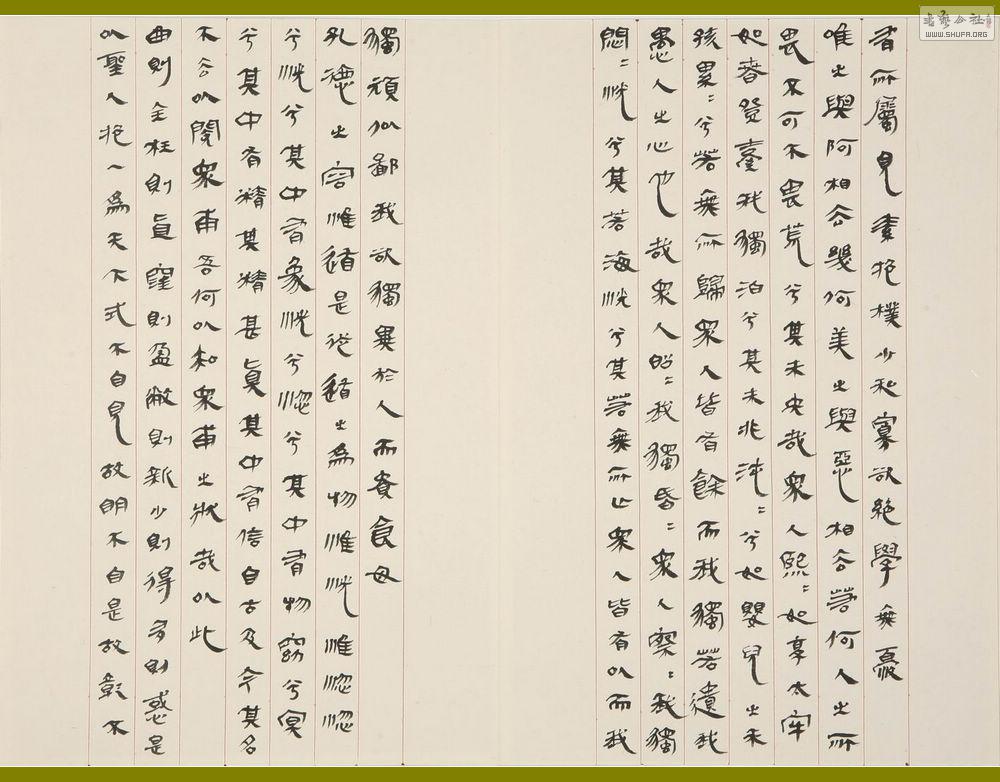 有所屬見素抱樸少私寡欲絕學無憂
唯之與阿相去幾何美之與惡相去若何人之所
畏不可不畏荒兮其未央哉衆人熙〻如享太牢
如春登臺我獨泊兮其未兆沌〻兮如嬰兒之未
孩累〻兮若無所歸衆人皆有餘而我獨若遺我
愚人之心也哉衆人昭〻我獨昏〻衆人察〻我獨
悶〻恍兮其若海恍兮其若無所止衆人皆有以而我
獨頑似鄙我欲獨異於人而貴食母
孔德之容惟道是從道之為物惟恍惟惚惚
兮恍兮其中有象恍兮惚兮其中有物窈兮冥
兮其中有精其精甚真其中有信自古及今其名
不去以閱衆甫吾何以知衆甫之狀哉以此
曲則全枉則直窪則盈敝則新少則得多則惑是
以聖人抱一為天下式不自見故明不自是故彰不
書藝公社
WWW.SHUFA.ORG